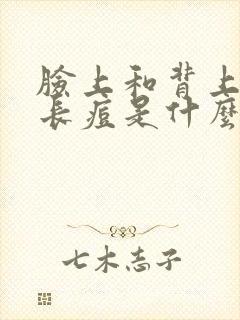 臉上和背上
長痘是什麼
七木志子